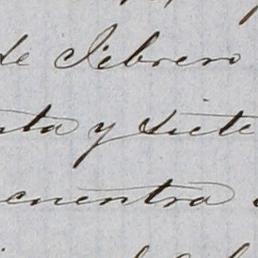 de Febrero
nta y siete
cuentra